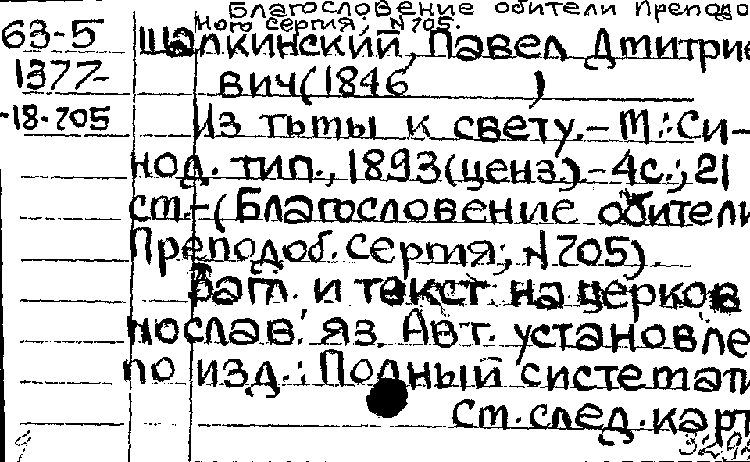 Благословение обители Преподо
ного Сергия; N 705.
63-5 Шалкинский, Павел Дмитрие
1377- вич(1846 )
-18-705 Из тьмы к свету.-М.:Си-
нод. тип., 1893(ценз.)-4с.; 21
см.-(Благословение обители
Преподоб. Сергия; N 705).
Загл. и текст на церков
нослав. яз. Авт. установле
по изд.: Полный системати
см. след. карт